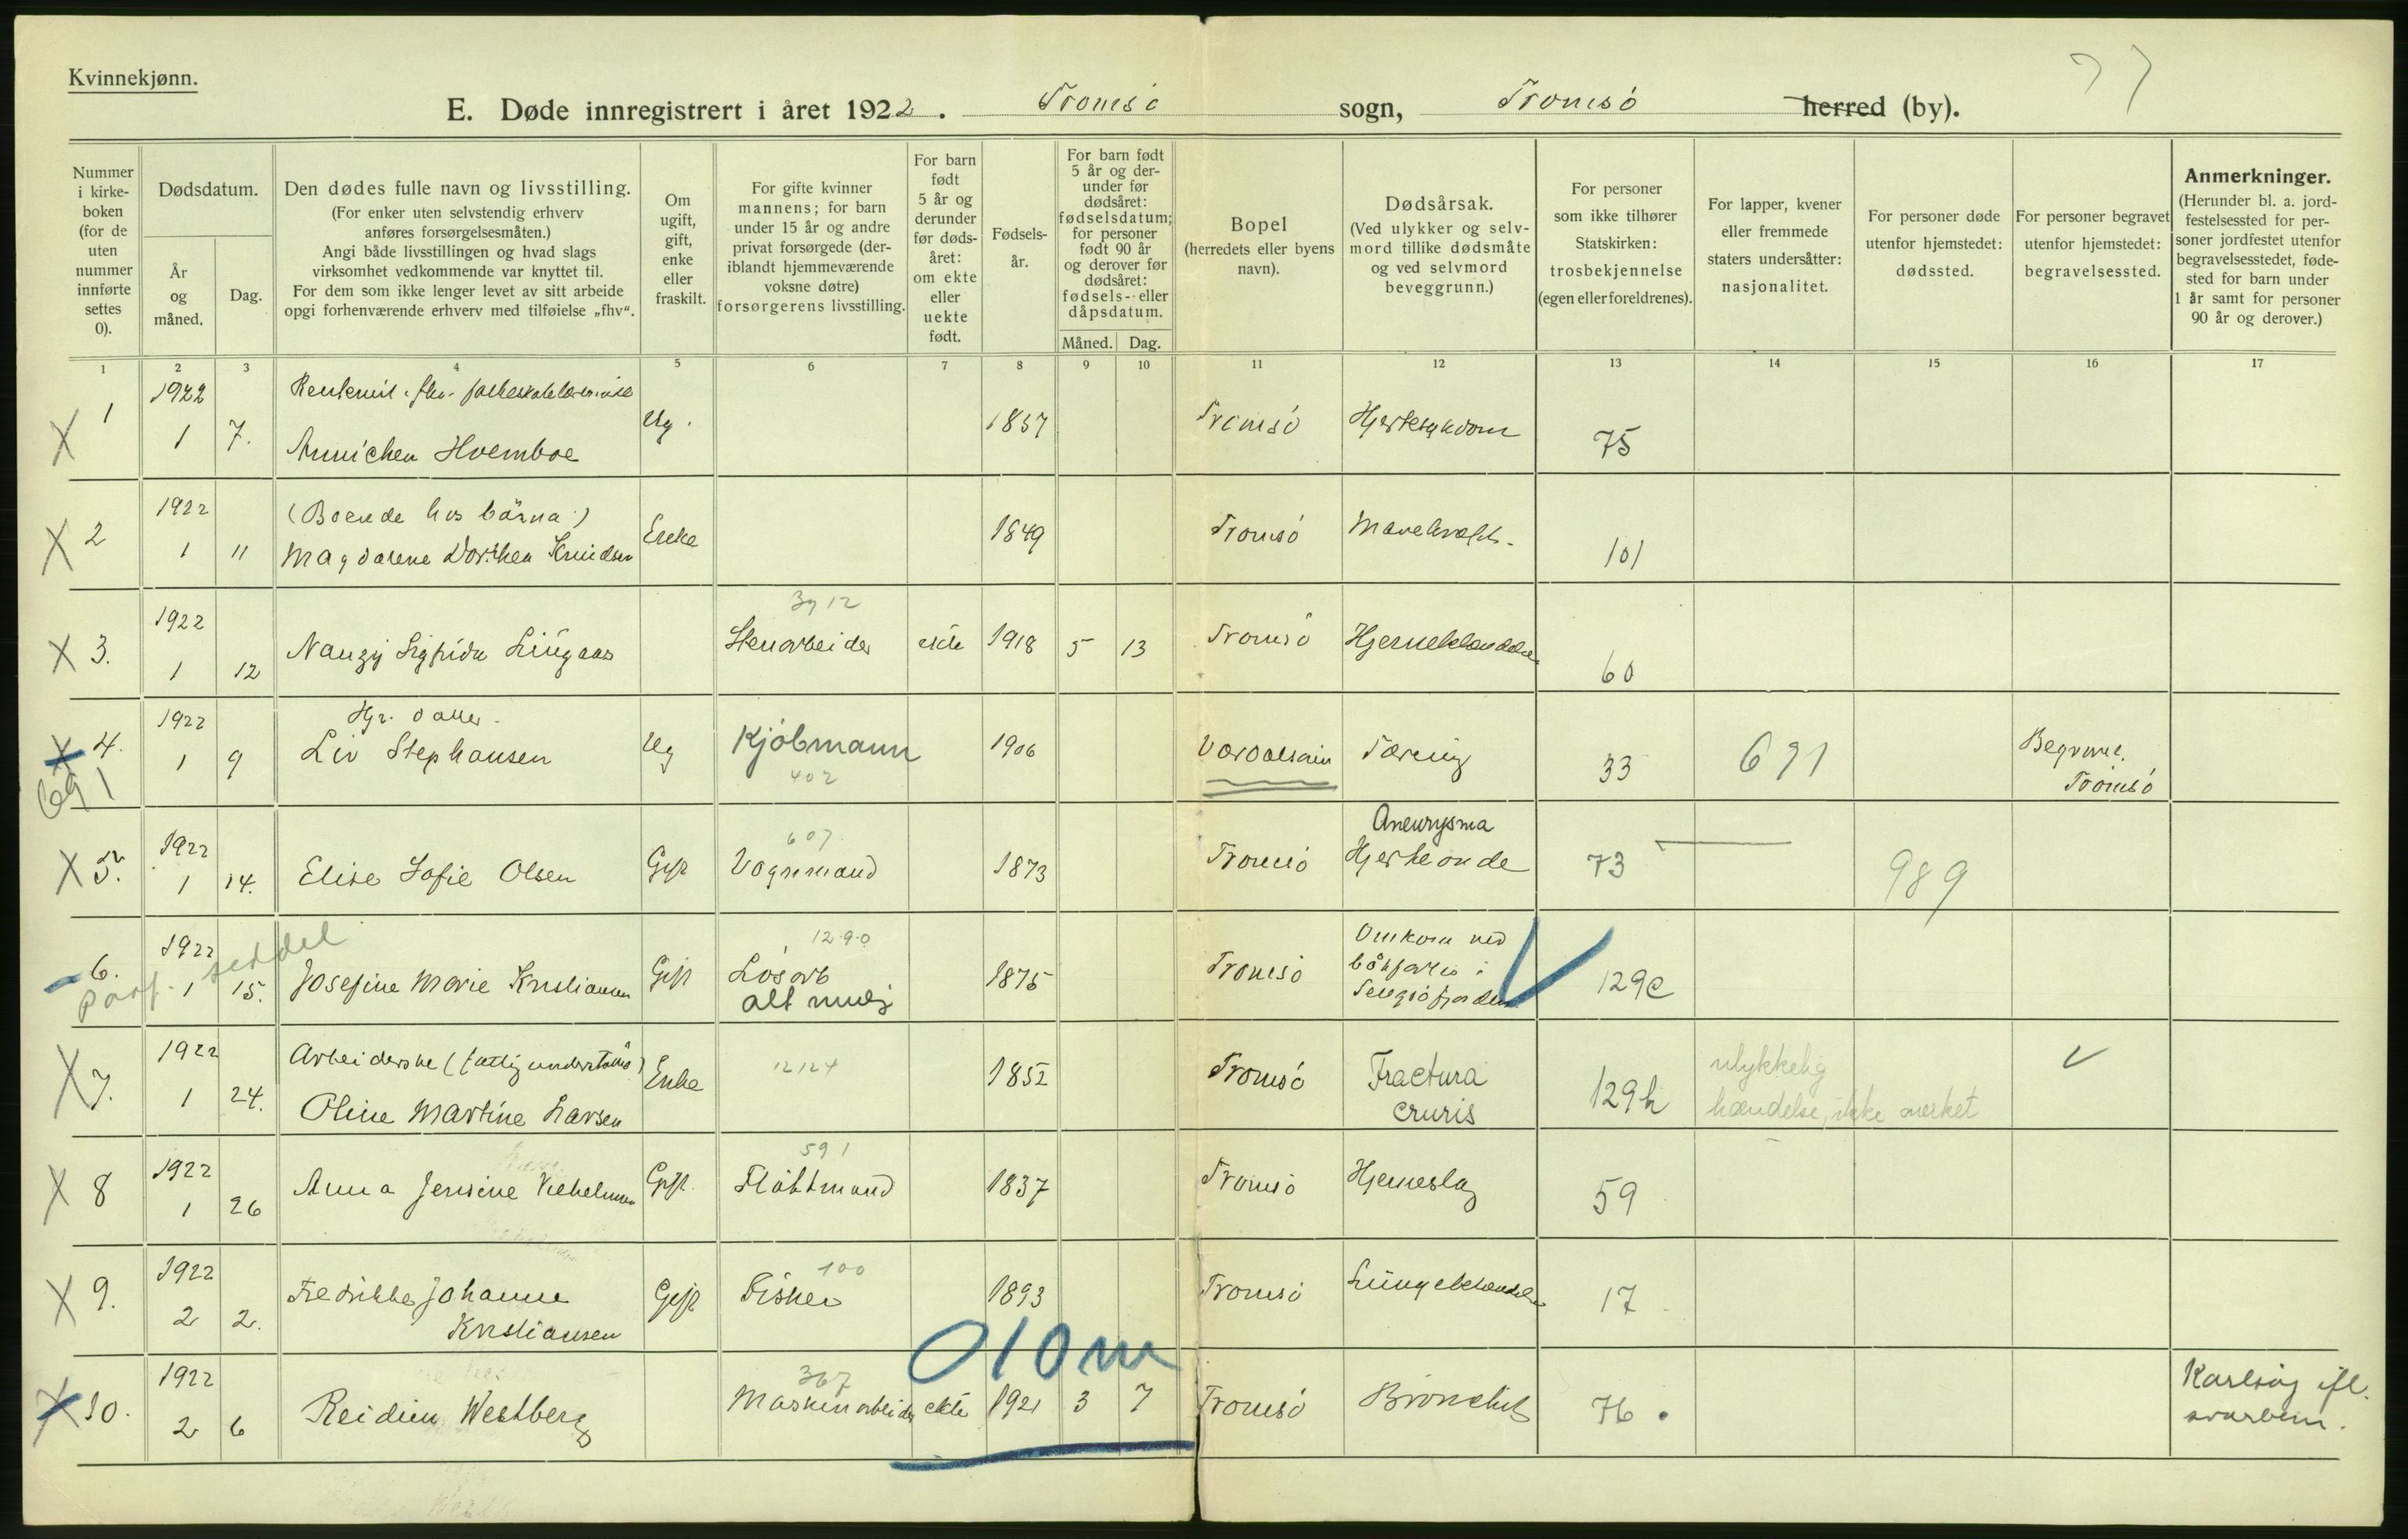 Kvinnekjønn.
77
E. Døde innregistrert i året 1922. Tromsø sogn, Tromsø herred (by).
Nummer i kirke-boken (for de uten nummer innførte settes 0).
Dødsdatum.
År og måned.
Dag.
Den dødes fulle navn og livsstilling.
(For enker uten selvstendig erhverv
anføres forsørgelsesmåten.)
Angi både livsstillingen og hvad slags
virksomhet vedkommende var knyttet til.
For dem som ikke lenger levet av sitt arbeide
opgi forhenværende erhverv med tilføielse „fhv“.
Om ugift, gift, enke eller fraskilt.
For gifte kvinner
mannens; for barn
under 15 år og andre
privat forsørgede (der-
iblandt hjemmeværende
voksne døtre)
forsørgerens livsstilling.
For barn født 5 år og derunder før døds-året: om ekte eller uekte født.
Fødsels-år.
For barn født
5 år og der-
under før
dødsåret:
fødselsdatum;
for personer
født 90 år
og derover før
dødsåret:
fødsels- eller
dåpsdatum.
Måned. Dag.
Bopel
(herredets eller byens
navn).
Dødsårsak.
(Ved ulykker og selv-
mord tillike dødsmåte
og ved selvmord
beveggrunn.)
For personer
som ikke tilhører
Statskirken:
trosbekjennelse
(egen eller foreldrenes).
For lapper, kvener
eller fremmede
staters undersåtter:
nasjonalitet.
For personer døde
utenfor hjemstedet:
dødssted.
For personer begravet
utenfor hjemstedet:
begravelsessted.
Anmerkninger.
(Herunder bl. a. jord-
festelsessted for per-
soner jordfestet utenfor
begravelsesstedet, føde-
sted for barn under
1 år samt for personer
90 år og derover.)
1 2 3 4 5 6 7 8 9 10 11 12 13 14 15 16 17
X 1 1922 1 7. Annichen Hvemboe Ug. 1857 Tromsö Hjertesykdom 75
X 2 1922 1 11 (Boende hos börna)
Magdalene Dorthea Knudsen Enke 1849 Tromsö Mavekræft. 101
3912
X 3. 1922 1 12 Stenarbeider ekte 1918 5 13 Tromsö Hjernebetændelse 60
Hjv. datter
X 4. 1922 1 9 Liv Stephansen Ug Kjöbmann 1906 Værdalsøien Tæring 33 691 Begravet. Tromsö
691 402
607 Aneurysma
X 5. 1922 1 14. Elise Sofie Olsen Gift Vognmand 1873 Tromsö Hjerteonde 73 989
1290
6. 1922 1 15. Josefine Marie Kristiansen Gift Lösarb 1875 Tromsö Omkom ved
båtforlis i
129c
seddel
alt mulig
X 7. 1922 1 24. Arbeiderske (fattigunderstött)
Oline Martine Larsen Enke 12124 1852 Tromsö Fractura
cruris 129h ulykkelig
hændelse, ikke merket
591
X 8 1922 1 26 Anna Jensine Vilhelmsen Gift. Flöttmand 1837 Tromsö Hjerneslag 59
100
X 9. 1922 2 2. Fredrikke Johanne
Kristiansen Gift Fisker 1893 Tromsö Lungebetændelse 17
010 m
367
X 10. 1922 2 6 Reidun Westberg Maskinarbeider ekte 1921 3 7 Tromsö Bronchit 76. Karlsöy ifl.